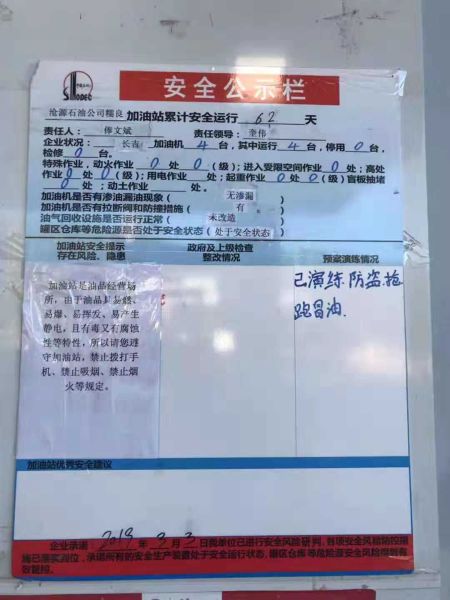 安全公示栏
沧源石油公司糯良 加油站累计安全运行 62 天
责任人： 俸文斌 责任领导： 奎伟
企业状况： 长吉 加油机 4 台，其中运行 4 台，停用 0 台，
检修 0 台。
特殊作业，动火作业 0 处 0 （级）；进入受限空间作业 0 处；高处
作业 0 处 0 （级）；用电作业 处；起重作业 0 处 0 （级）盲板抽堵
0 处；动土作业 处。
加油机是否有渗油漏油现象（ 无渗漏 ）
加油机是否有拉断阀和防撞措施（ 有 ）
油气回收设施是否运行正常（ 未改造 ）
罐区仓库等危险源是否处于安全状态（ 处于安全状态 ）
加油站安全提示
存在风险、隐患
政府及上级检查
整改情况
预案演练情况
加油站是油品经营场
所，由于油品具易燃、
易爆、易挥发、易产生
静电，且有毒又有腐蚀
性等特性，所以请您遵
守加油站，禁止拨打手
机、禁止吸烟、禁止烟
火等规定。
已演练.防盗.抢
跑冒油.
加油站优秀安全建议
企业承诺：2019 年 3 月 3 日我单位已进行安全风险研判，各项安全风险防控措
施已落实到位，承诺所有的安全生产装置处于安全运行状态，罐区仓库等危险源安全风险得到有
效管控。